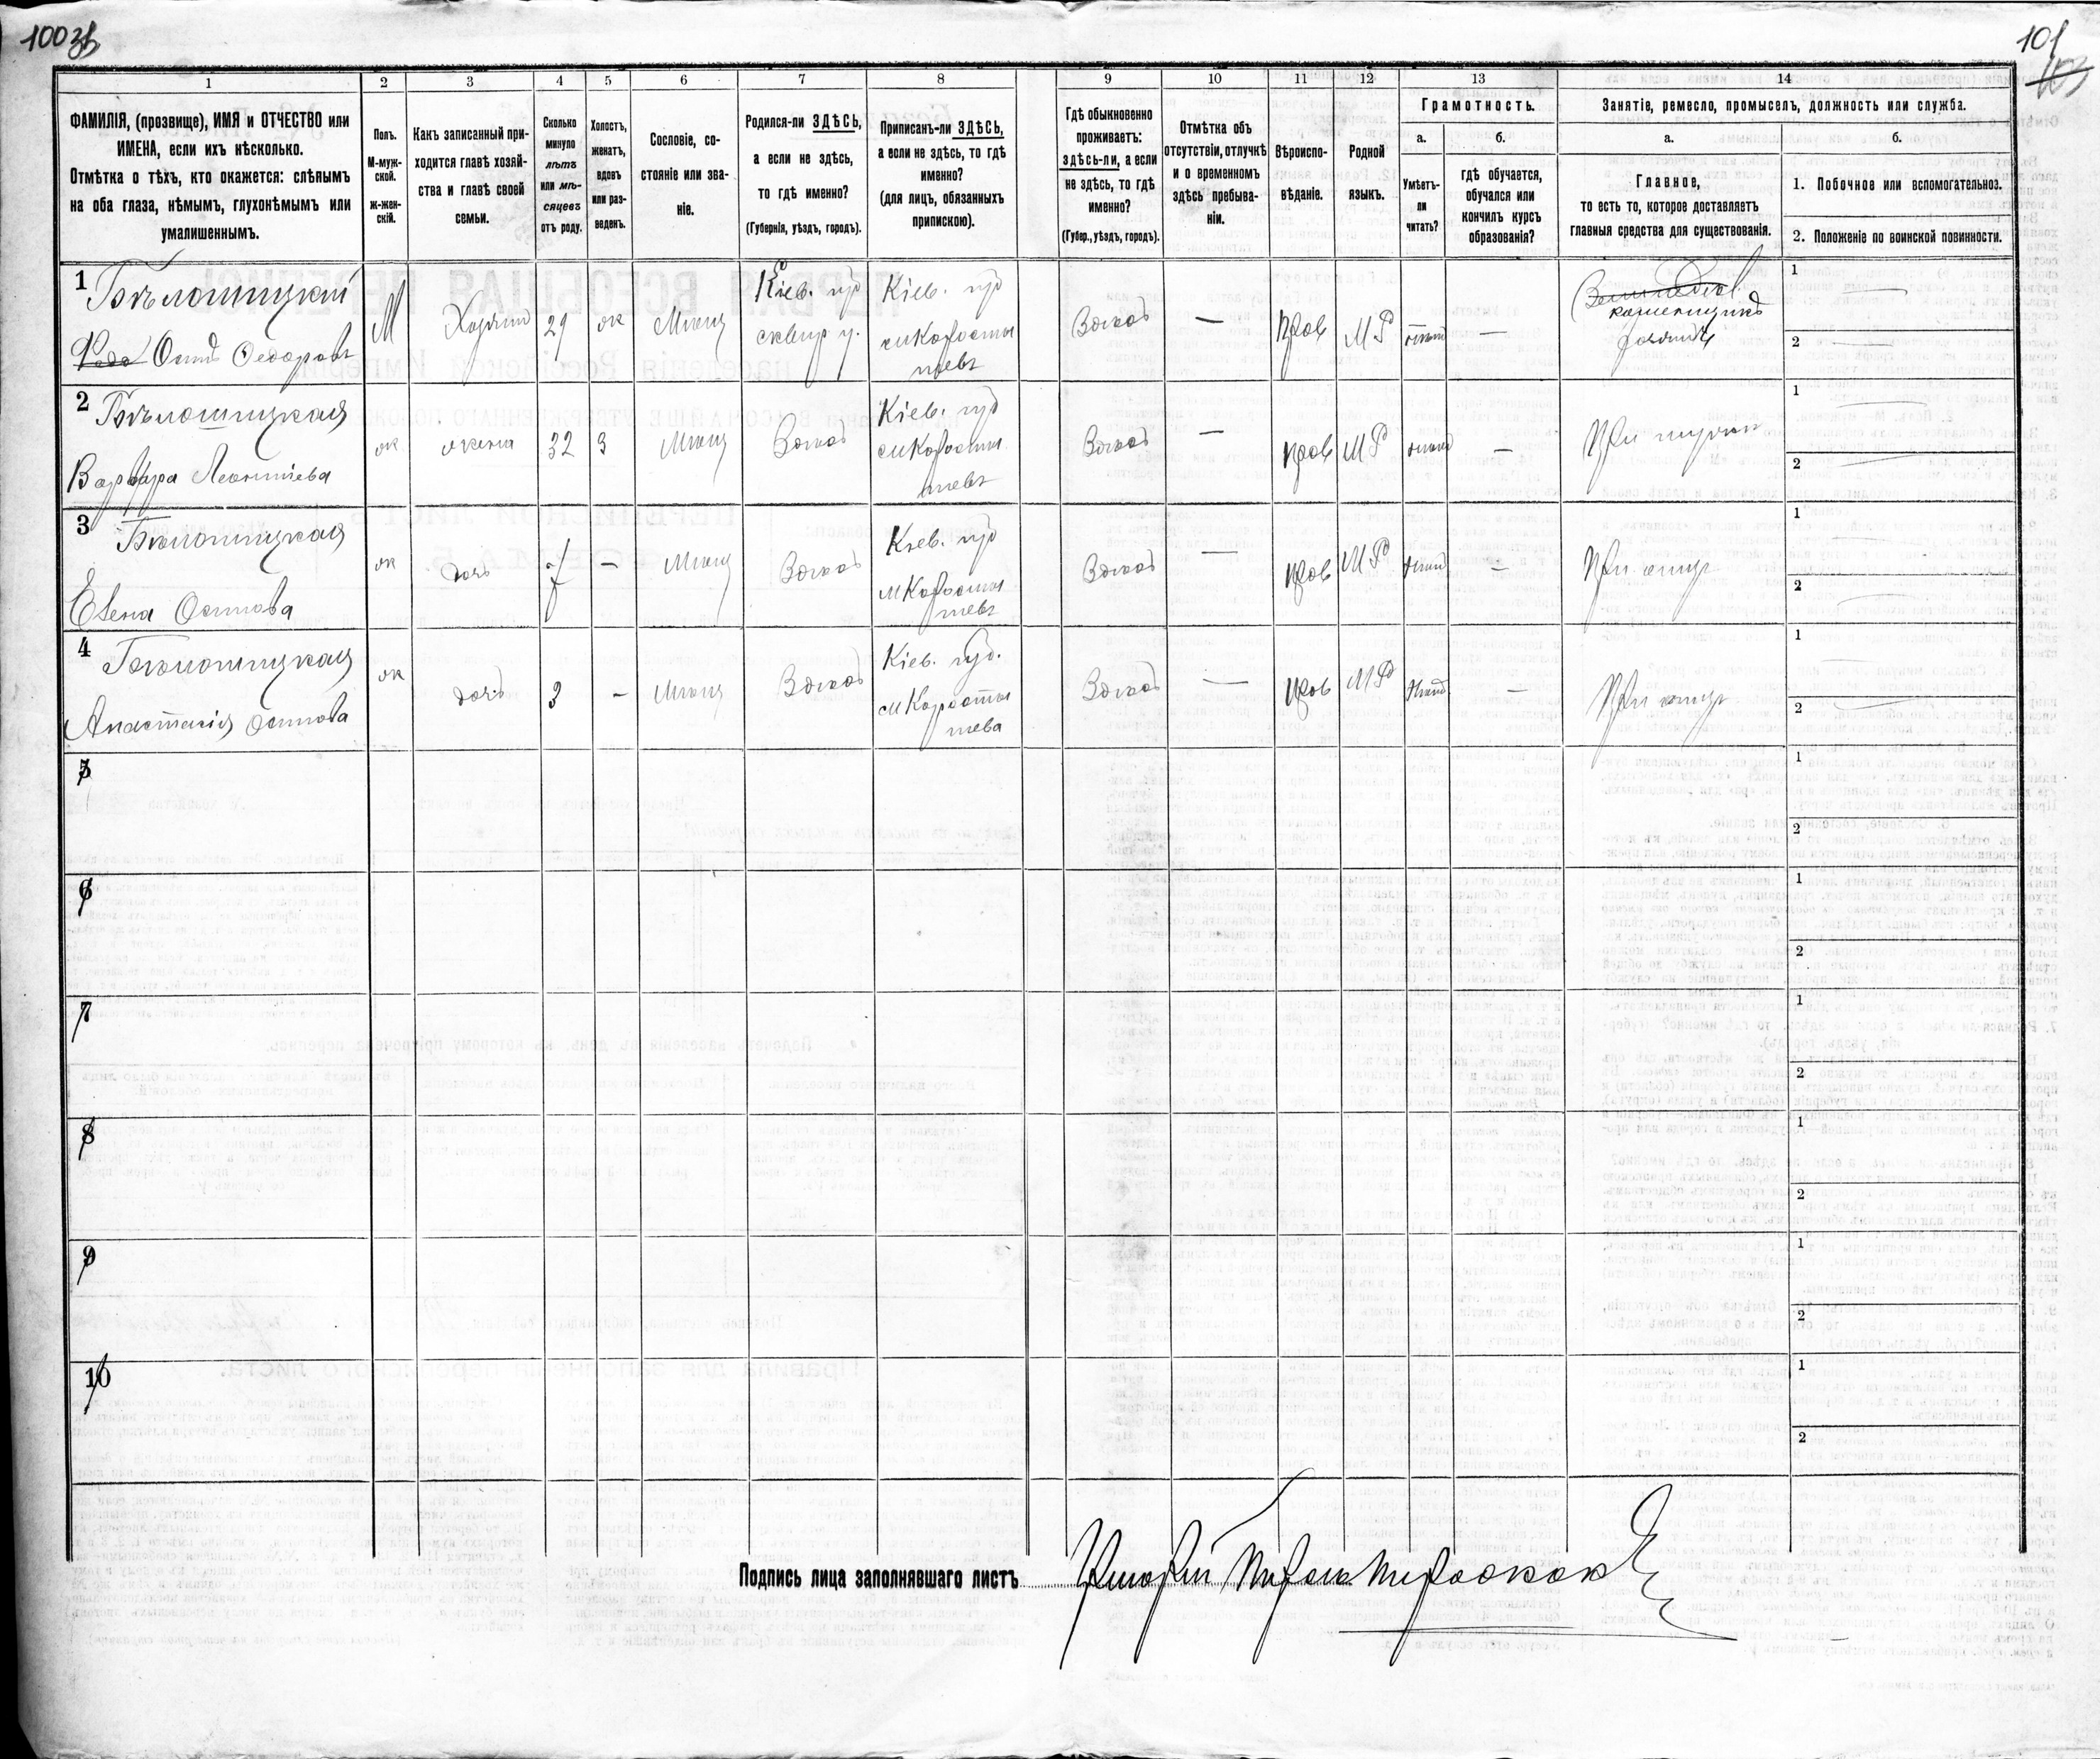 100 зв
101
103
1
2
3
4
5
6
7
8
9
10
11
12
13
14
ФАМИЛІЯ, (прозвище), ИМЯ и ОТЧЕСТВО или
ИМЕНА, если ихъ нѣсколько.
Отмѣтка о тѣхъ, кто окажется: слѣпымъ
на оба глаза, нѣмымъ, глухонѣмымъ или
умалишеннымъ.
Полъ.
М-муж-
ской.
ж-жен-
скій.
Какъ записанный при-
ходится главѣ хозяй-
ства и главѣ своей
семьи.
Сколько
минуло
лѣтъ
или мѣ-
сяцевъ
отъ роду.
Холостъ,
женатъ,
вдовъ
или раз-
веденъ.
Сословіе, со-
стояніе или зва-
ніе.
Родился-ли ЗДѢСЬ,
а если не здѣсь,
то гдѣ именно?
(Губернія, уѣздъ, городъ).
Приписанъ-ли ЗДѢСЬ,
а если не здѣсь, то гдѣ
именно?
(для лицъ, обязанныхъ
припискою).
Гдѣ обыкновенно
проживаетъ:
здѣсь-ли, а если
не здѣсь, то гдѣ
именно?
(Губер., уѣздъ, городъ).
Отмѣтка объ
отсутствіи, отлучкѣ
и о временномъ
здѣсь пребыва-
ніи.
Вѣроиспо-
вѣданіе.
Родной
языкъ.
Грамотность.
а.
Умѣетъ-
ли
читать?
б.
гдѣ обучается,
обучался или
кончилъ курсъ
образованія?
Занятіе, ремесло, промыселъ, должность или служба.
а.
Главное,
то есть то, которое доставляетъ
главныя средства для существованія.
б.
1. Побочное или вспомогательное.
2. Положеніе по воинской повинности.
1
Бѣлошицкій
Осипъ Федоровъ
М
Хозяинъ
29
ж
Мѣщ
Кіев. губ
сквир у.
Кіев. губ
м Коростышевъ
Здѣсь
—
прав
МР
—
каменщикъ
1
2
2
Бѣлошицкая
Варвара Леонтіева
ж
жена
32
З
Мѣщ
Здѣсь
Кіев. губ
м Коростышевъ
Здѣсь
—
прав
МР
—
При мужѣ
1
2
3
Бѣлошицкая
Елена Осипова
ж
дочь
7
—
Мѣщ
Здѣсь
Кіев. губ
м Коростышевъ
Здѣсь
—
прав
МР
—
При отцѣ
1
2
4
Бѣлошицкая
Анастасія Осипова
ж
дочь
3
—
Мѣщ
Здѣсь
Кіев. губ.
м Коростышева
Здѣсь
—
прав
МР
—
При отцѣ
1
2
5
1
2
6
1
2
7
1
2
8
1
2
9
1
2
10
1
2
Подпись лица заполнявшаго листъ